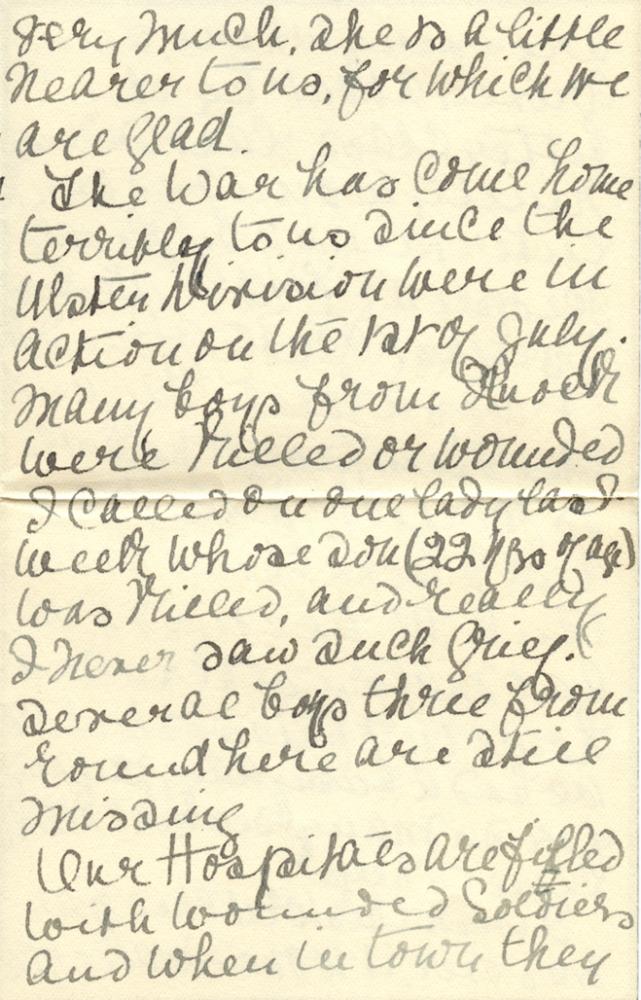 very much. She is a little
nearer to us, for which we
are glad.
The War has come home
terribly to us since the
Ulster Division were in
action on the 1st of July.
Many boys from Knock
were killed or wounded
I called on one lady last
week whose son (22 yrs of age)
was killed, and really
I never saw such grief.
Several boys three from
round here are still
missing
Our Hospitals are filled
with wounded Soldiers
and when in town they